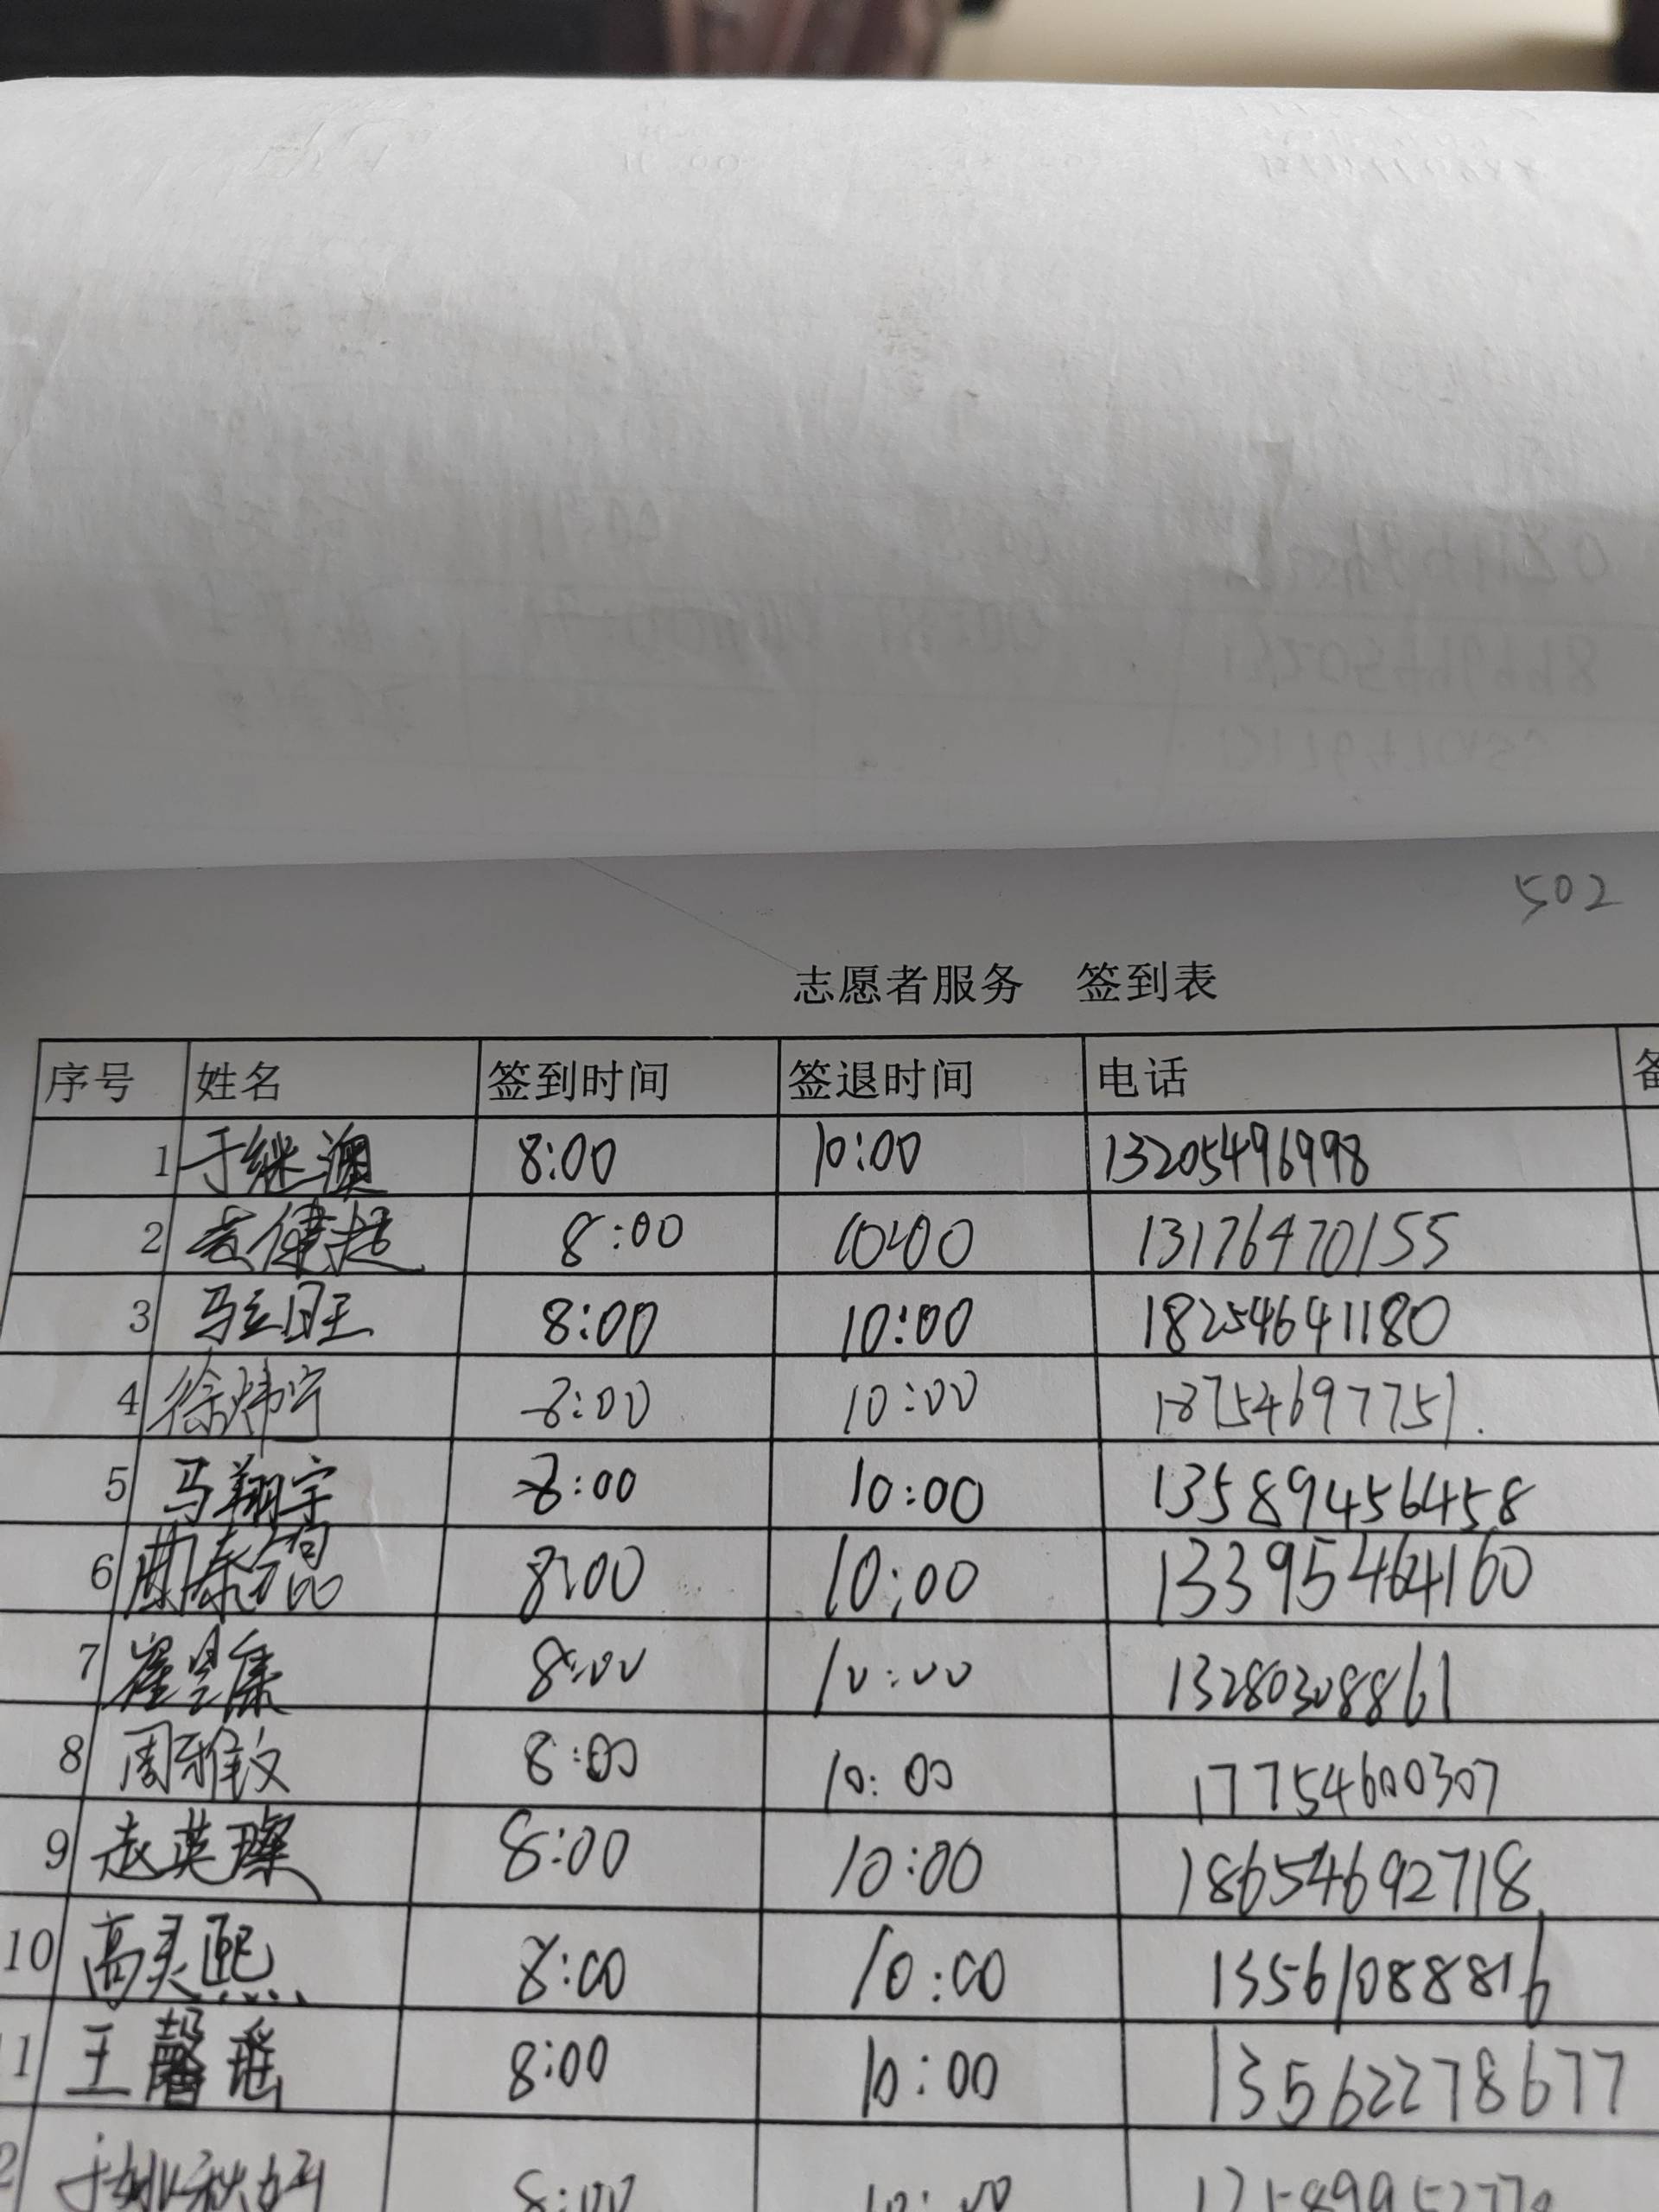 502
志愿者服务 签到表
序号 姓名 签到时间 签退时间 电话 备
1 于继澳 8:00 10:00 13205496998
2 袁健超 8:00 10:00 13176470155
3 马玄旺 8:00 10:00 18254641180
4 徐炜宁 8:00 10:00 18754697751.
5 马翔宇 8:00 10:00 13589456458
6 8:00 10:00 13395464160
7 崔昱康 8:00 10:00 13280308861
8 周雅文 8:00 10:00 17754600307
9 赵英璨 8:00 10:00 18654692718
10 高灵熙 8:00 10:00 13561088816
11 王馨瑶 8:00 10:00 13562278677
8:00 10:00